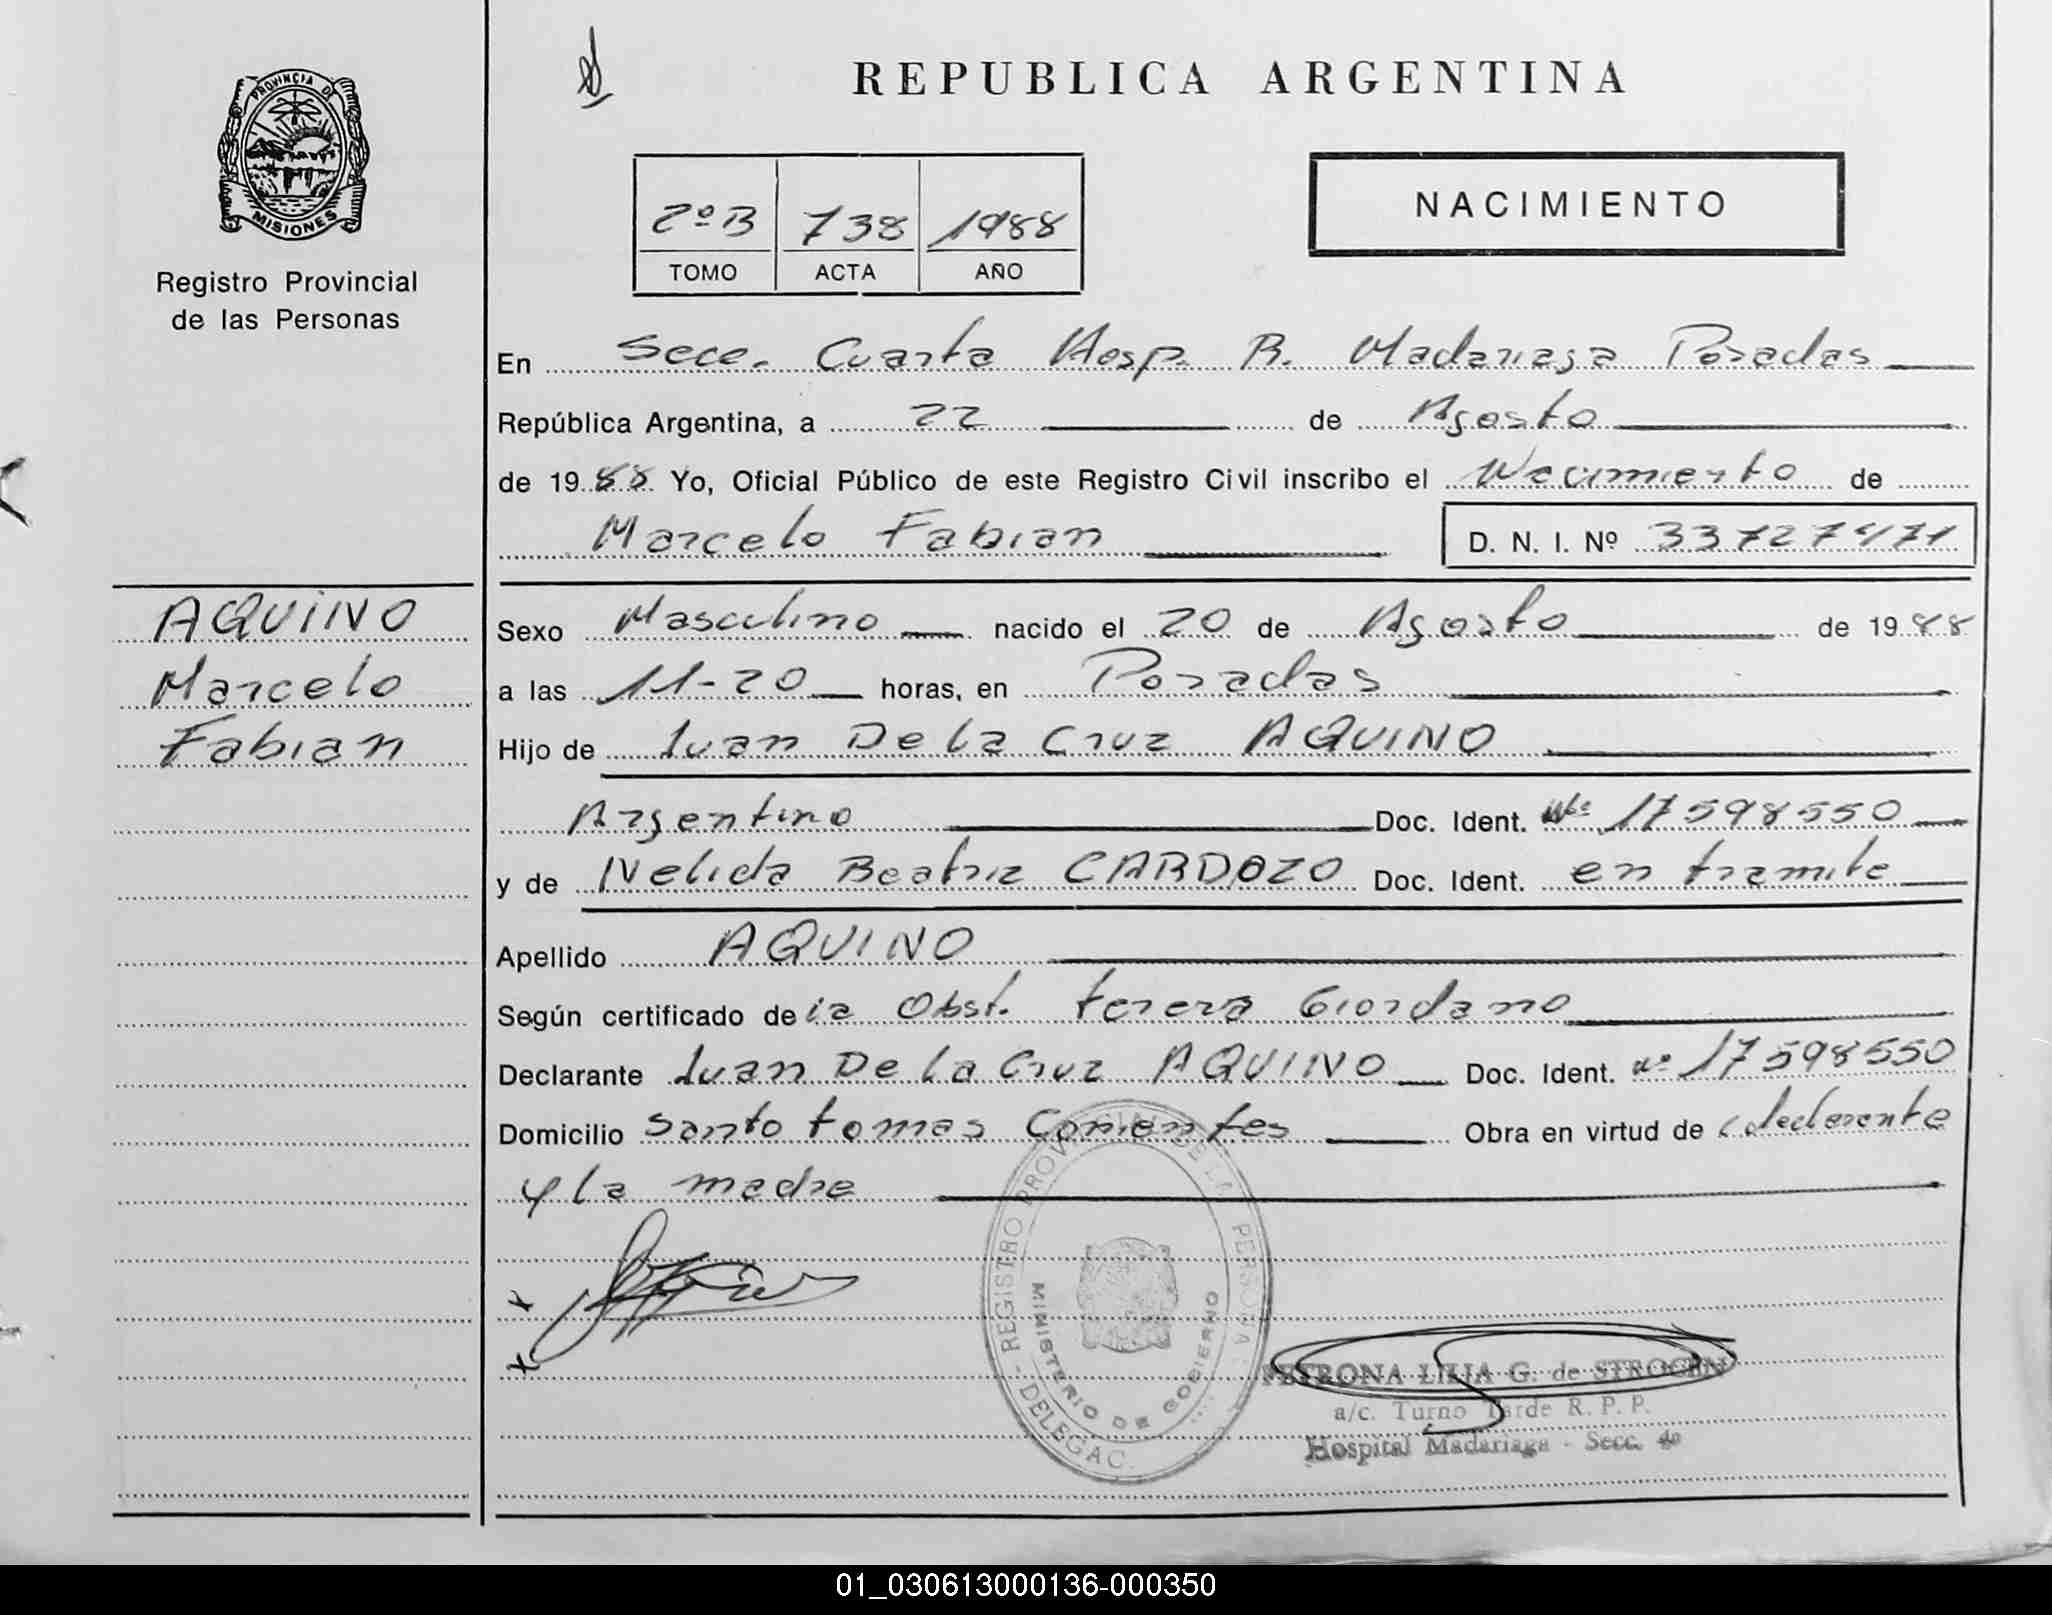 REPUBLICA ARGENTINA
PROVINCIA DE
MISIONES
Registro Provincial
de las Personas
2º B 738 1988
TOMO ACTA AÑO
NACIMIENTO
En Secc. Cuarta Hosp. R. Madariaga Posadas
República Argentina, a 22 de Agosto
de 1988 Yo, Oficial Público de este Registro Civil inscribo el Nacimiento de
Marcelo Fabian D. N. I. Nº 33727471
AQUINO
Marcelo
Fabian
Sexo Masculino nacido el 20 de Agosto de 1988
a las 11-20 horas, en Posadas
Hijo de Juan De la Cruz AQUINO
Argentino Doc. Ident. Nº 17598550
y de Nelida Beatriz CARDOZO Doc. Ident. en tramite
Apellido AQUINO
Según certificado de la Obst. teresa Giordano
Declarante Juan De La Cruz AQUINO Doc. Ident. Nº 17598550
Domicilio Santo tomas Corrientes Obra en virtud de declarante
y la madre
REGISTRO PROVINCIAL DE LA PERSONA
MINISTERIO DE GOBIERNO
DELEGAC.
PETRONA LILIA G. de STROCEN
a/c. Turno Tarde R. P. P.
Hospital Madariaga - Secc. 4o
01_030613000136-000350